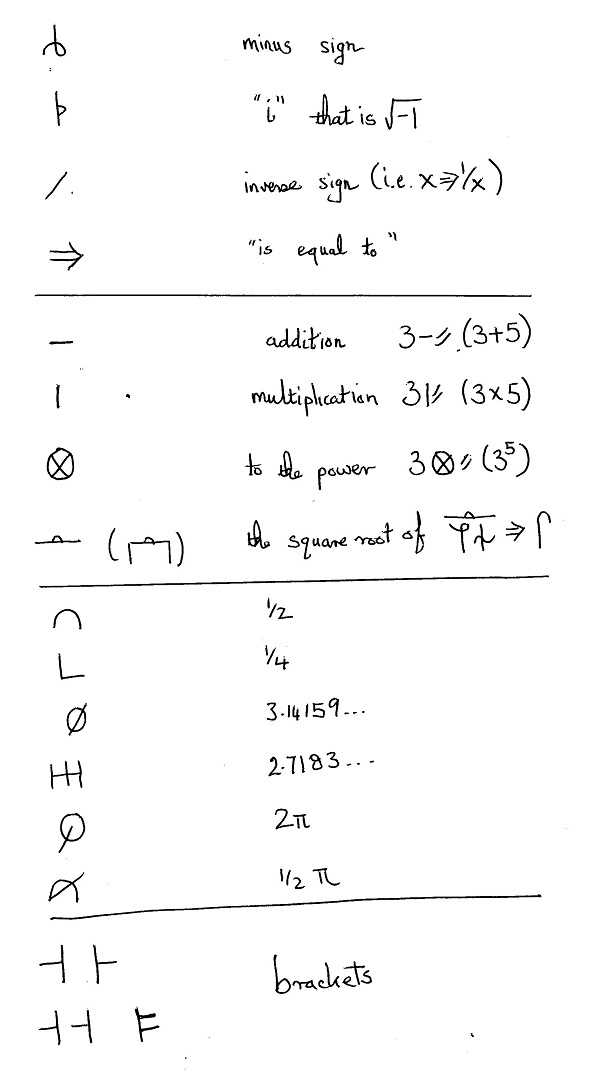 minus sign
"i" that is √-1
/ inverse sign (i.e. x⇒1/x)
⇒ "is equal to"
— addition (3+5)
| multiplication (3×5)
⊗ to the power (3⁵)
the square root of
∩ 1/2
L 1/4
∅ 3.14159...
2.7183...
2π
1/2 π
⊣ ⊢ brackets